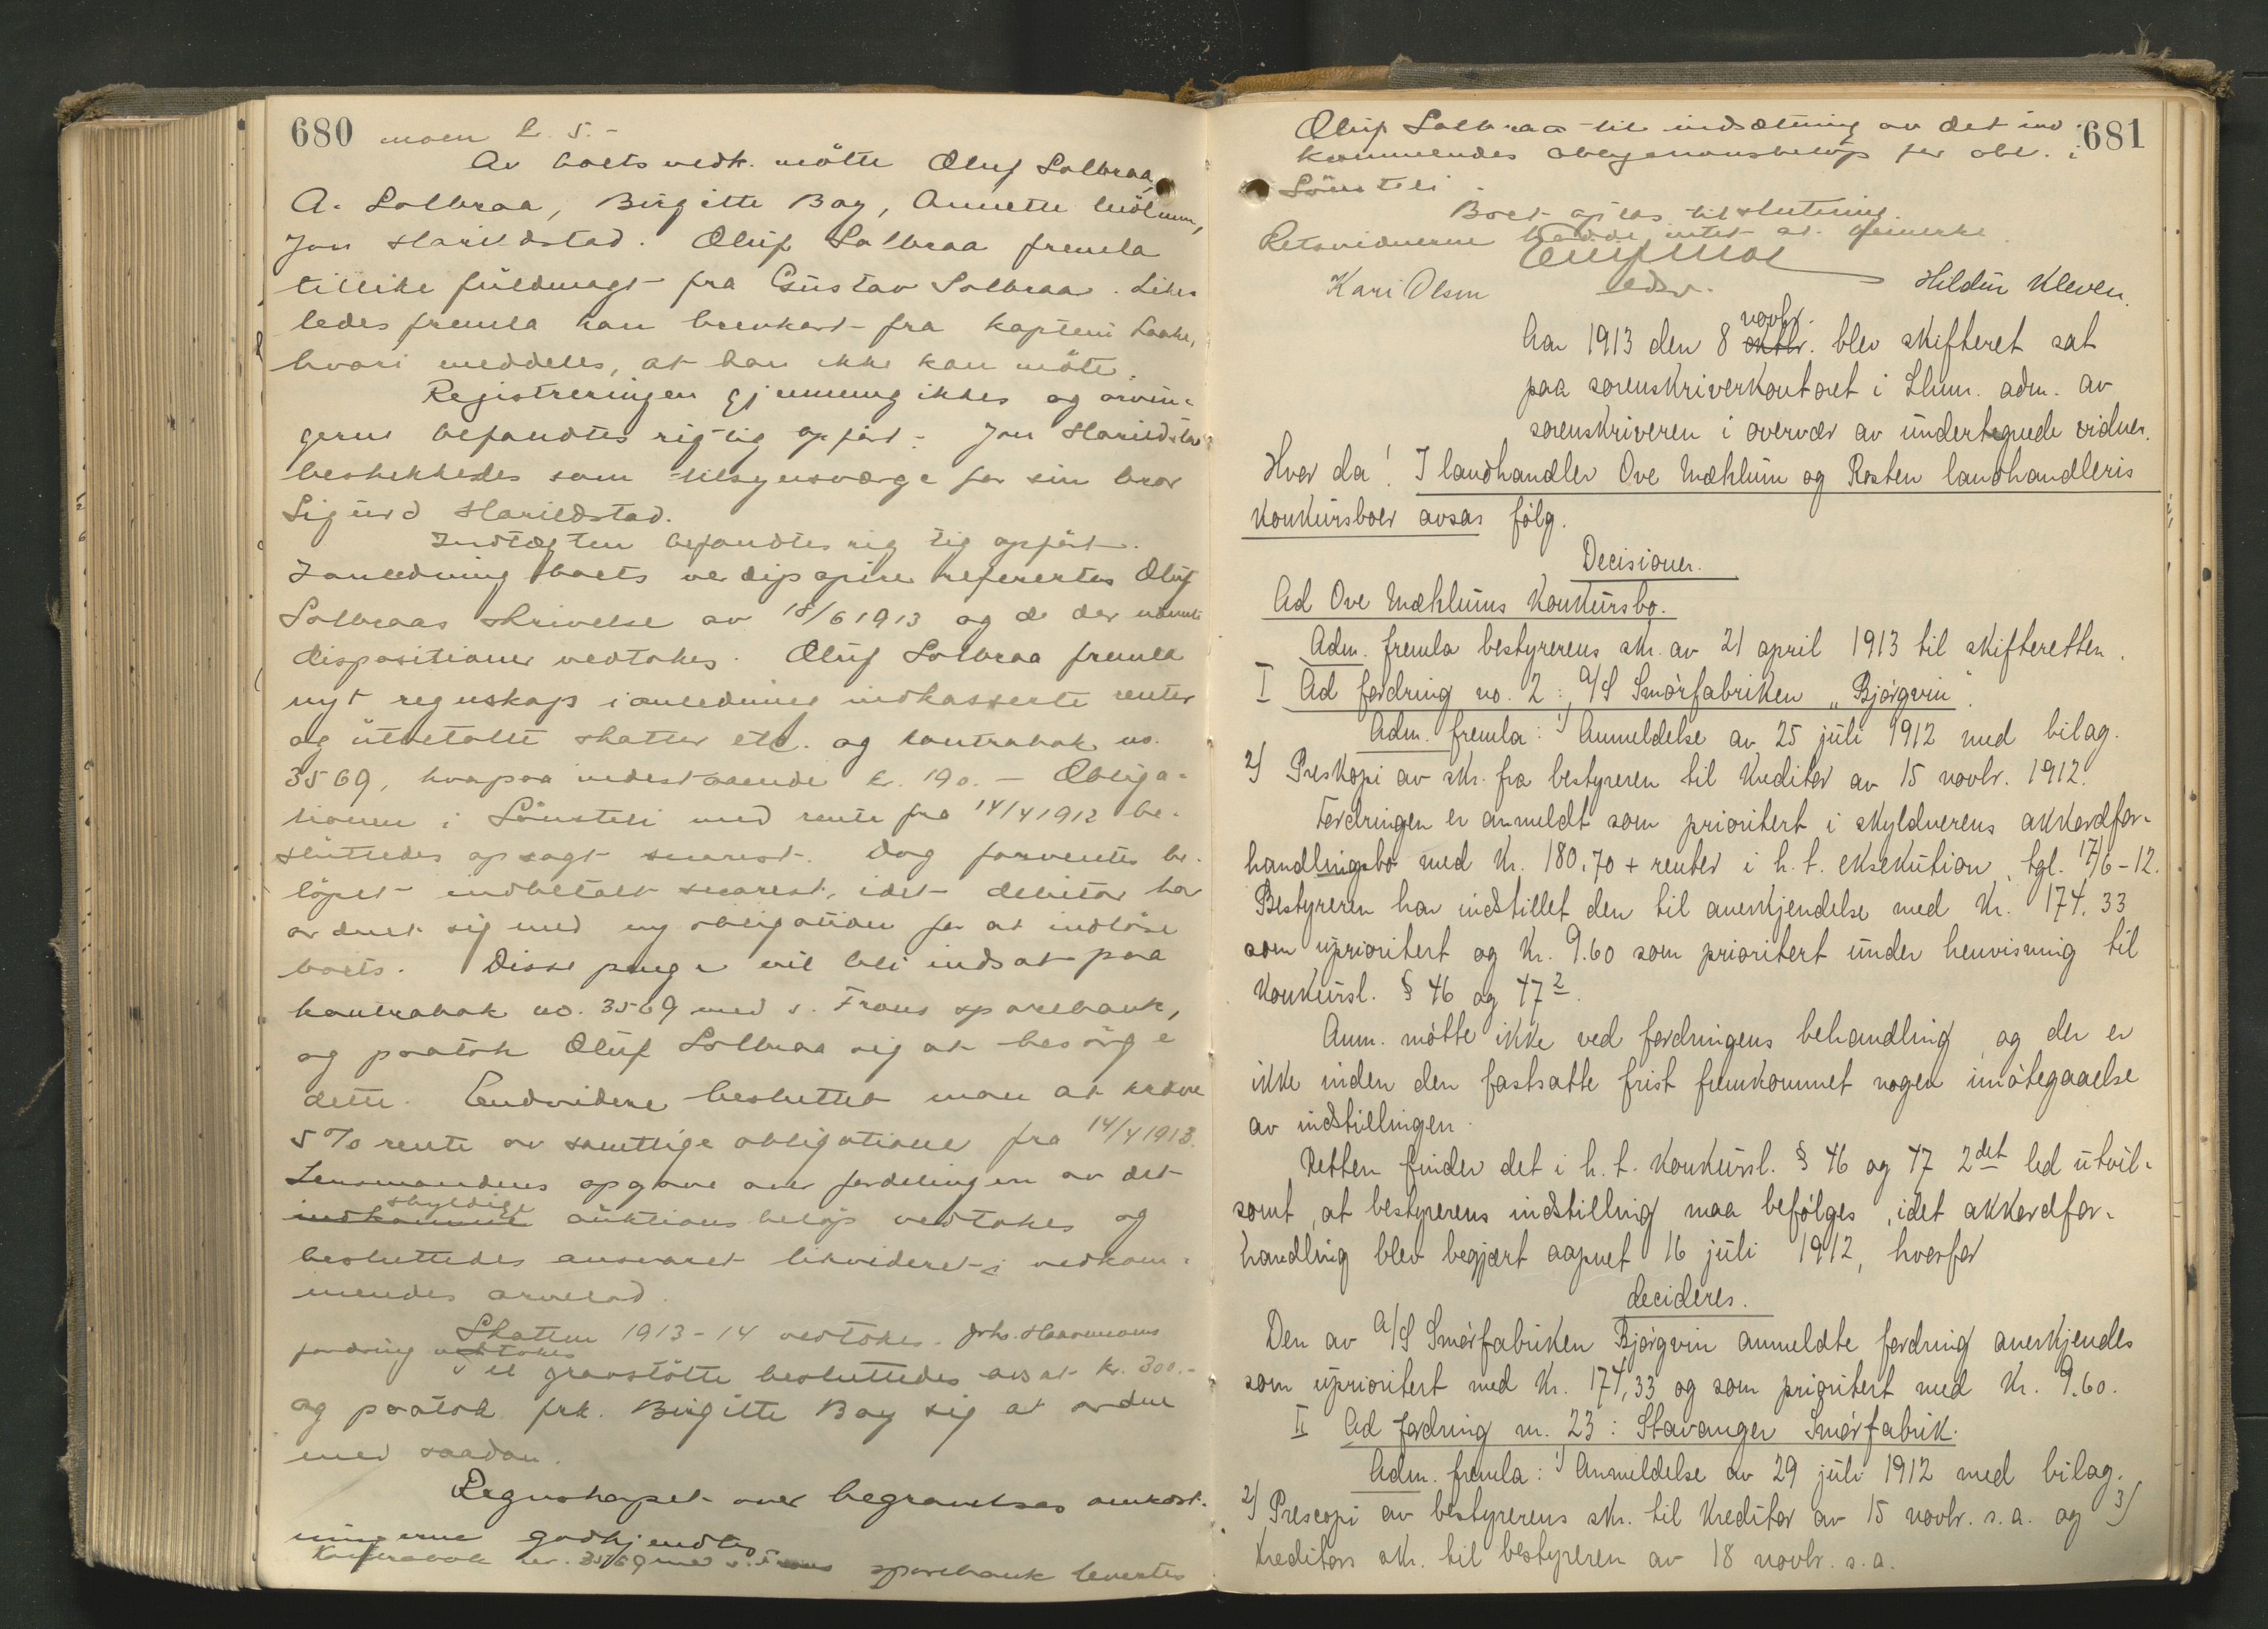 680
moen L. S. -
Av boets vedk. mötte Oluf Solbraa,
A. Solbraa, Birgitte Bay, Annette
Jon Harildstad. Oluf Solbraa fremla
tillike fuldmagt fra Gustav Solbraa. Likes
ledes fremla han brevkort fra kaptein Laake,
hvori meddeles, at han ikke kan möte.
Registreringen gjennemgikkes og arvin-
gerne befandtes rigtig opfört. Jon Harildstad
beskikkedes som tilsynsværge for sin bror
Sigurd Harildstad.
Indtægten befandtes rigtig opfört.
I anledning boets verdipapirer refertes Oluf
Solbraas skrivelse av 18/6 1913 og de der nævnte
dispositioner vedtokes. Oluf Solbraa fremla
nyt regnskap i anledning indkasserte renter
og utbetalte skatter etc. og kontrabok no.
3569, hvorpaa indestaaende kr. 190. - Obliga-
tionen i Lönsteli med rente fra 14/4 1912 be-
sluttedes opsagt snarest. Dog forventes be-
löpet indbetalt snarest, idet debitor har
ordnet sig med ny obligation for at indlöse
boets. Disse penge vil bli indsat paa
kontrabok no. 3569 med s. Frons sparebank,
og paatok Oluf Solbraa sig at besörge
dette. Endvidere besluttet man at kræve
5% rente av samtlige obligationer fra 14/4 1913.
Lensmandens opgave over fordelingen av det
indkomne skyldige auktionsbelöp vedtokes og
besluttedes ansvaret likvideret i vedkom-
mendes arvelod.
Skatten 1913-14 vedtokes. Joh.
fordring vedtokes
Til gravstötte besluttedes avsat kr. 300.-
og paatok frk. Birgitte Bay sig at ordne
med saadan.
Regnskapet over begravelses omkost-
ningerne godkjendtes
Kontrabok nr. 3569 med s. Frons sparebank levertes
681
Oluf Solbraa til indsætning av det ind-
kommendes belöp for obl. i
Lönsteli.
Boet optas til slutning.
Retsvidnerne hadde intet at bemerke.
Kari Olsen
edsv.
Hildur Kleven.
Aar 1913 den 8 oktbr. novbr. blev skifteret sat
paa sorenskriverkontoret i Lhmr. adm. av
sorenskriveren i overvær av undertegnede vidner.
Hvor da! I landhandler Ove Mæhlum og Rosten landhandleris
konkursboer avsas fölg.
Decisioner.
Ad Ove Mæhlums konkursbo.
Adm. fremla bestyrerens skr. av 21 april 1913 til skifteretten.
I Ad fordring no. 2: A/S Smörfabriken „Bjørgvin”.
Adm. fremla: 1) Anmeldelse av 25 juli 1912 med bilag.
2) Preskopi av skr. fra bestyreren til kreditor av 15 novbr. 1912.
Fordringen er anmeldt som prioritert i skyldnerens akkordfor-
handlingsbo med kr. 180,70 + renter i h. t. eksekution, tgl. 17/6-12.
Bestyreren har indstillet den til anerkjendelse med kr. 174,33
som uprioritert og kr. 9.60 som prioritert under henvisning til
konkursl. § 46 og 47 2.
Anm. mötte ikke ved fordringens behandling, og der er
ikke inden den fastsatte frist fremkommet nogen imötegaaelse
av indstillingen.
Retten finder det i h. t. konkursl. § 46 og 47 2det led utvil-
somt, at bestyrerens indstilling maa befölges, idet akkordfor-
handling blev begjært aapnet 16 juli 1912, hvorfor
decideres.
Den av A/S Smörfabriken Bjørgvin anmeldte fordring anerkjendes
som uprioritert med kr. 174,33 og som prioritert med kr. 9.60.
II Ad fordring nr. 23: Stavanger Smörfabrik.
Adm. fremla: 1) Anmeldelse av 29 juli 1912 med bilag.
2) Prescopi av bestyrerens skr. til kreditor av 15 novbr. s.a. og 3)
kreditors skr. til bestyreren av 18 novbr. s.a.